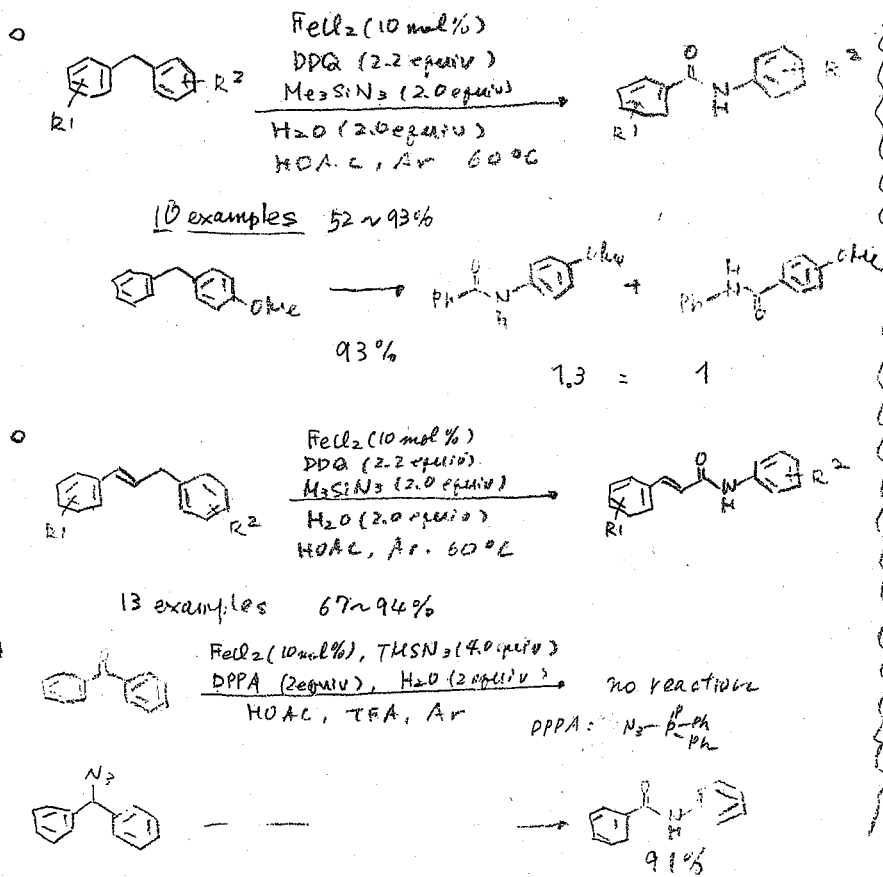 FeCl2 (10 mol%)
DDQ (2.2 equiv)
Me3SiN3 (2.0 equiv)
H2O (2.0 equiv)
HOAc, Ar 60°C
R1
R2
O
N
H
R1
R2
10 examples 52~93%
OMe
93%
Ph
O
N
H
OMe
+
Ph
H
N
O
OMe
1.3 = 1
FeCl2 (10 mol%)
DDQ (2.2 equiv)
M3SiN3 (2.0 equiv)
H2O (2.0 equiv)
HOAc, Ar. 60°C
R1
R2
O
N
H
R1
R2
13 examples 67~94%
O
FeCl2 (10 mol%), TMSN3 (4.0 equiv)
DPPA (2 equiv), H2O (2 equiv)
HOAC, TFA, Ar
no reaction
DPPA: N3-P-Ph
Ph
N3
O
N
H
91%